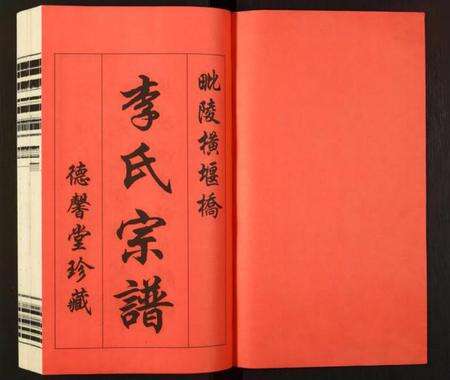 毗陵横堰橋
李氏宗譜
德馨堂珍藏